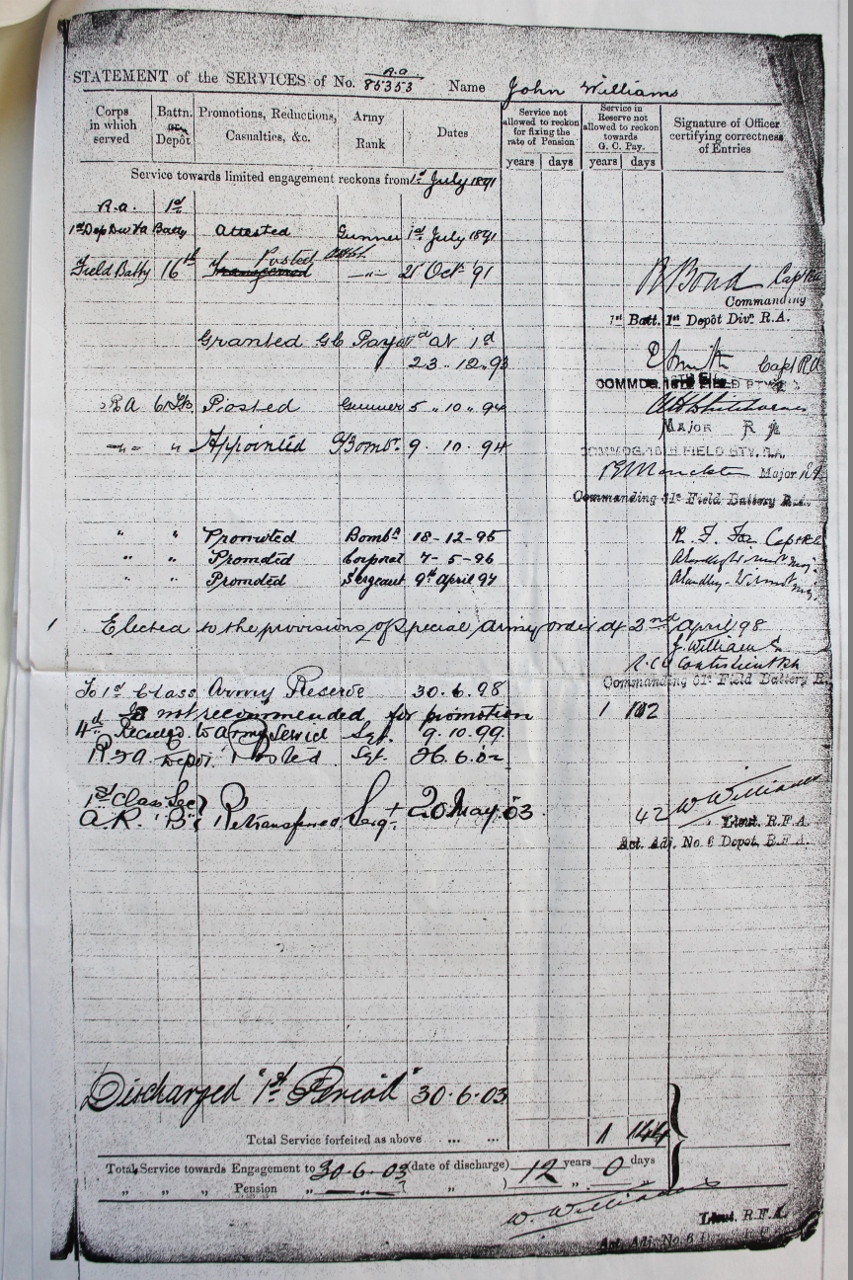 STATEMENT of the SERVICES of No. R.A. 85353 Name John Williams
Corps in which served
Battn. Depôt
Promotions, Reductions, Casualties, &c.
Army Rank
Dates
Service not allowed to reckon for fixing the rate of Pension
years days
Service in Reserve not allowed to reckon towards G. C. Pay.
years days
Signature of Officer certifying correctness of Entries
Service towards limited engagement reckons from 1st July 1891
R.a. 1st
1st Dep Div Ra Batty Attested Gunner 1st July 1891
Field Batty 16th Transferred Posted —"— 21 Oct '91
R Bond Capt RA
Commanding
1st Batt. 1st Depôt Divn. R.A.
Granted GC Pay at 1d
23 . 12 . 93
Capt RA
COMMDG. 16TH FIELD BTY
RA Posted Gunner 5 " 10 " 94
Major R A
—"— " Appointed A/Bombr. 9 . 10 . 94
COMMDG. 16TH FIELD BTY. R.A.
Major RA
Commanding 61st Field Battery R.A.
" " Promoted Bombr 18-12-95 R. F. Fox Capt RA
" " Promoted Corporal 7-5-96
" " Promoted Sergeant 9th April 97
1 Elected to the provisions of Special Army order of 2nd April 98
J. Williams
Commanding 61st Field Battery R.
To 1st Class Army Reserve 30.6.98
Is not recommended for promotion 1 102
Recalled to Army Service Sgt. 9.10.99
RFA 6 Depôt Posted Sgt. 26.6.02
1st Class Sec
A.R. "B" Retransferred Sergt. 20 May 03. 42 W Williams
Lieut. R.F.A.
Act. Adj. No. 6 Depot, R.F.A.
Discharged "1st Period" 30.6.03
Total Service forfeited as above ... ... 1 144
Total Service towards Engagement to 30-6-03 (date of discharge) 12 years 0 days
" " " Pension " —"— ( " ) " "
W. Williams
Lieut. R.F.A.
Act. Adj. No. 6